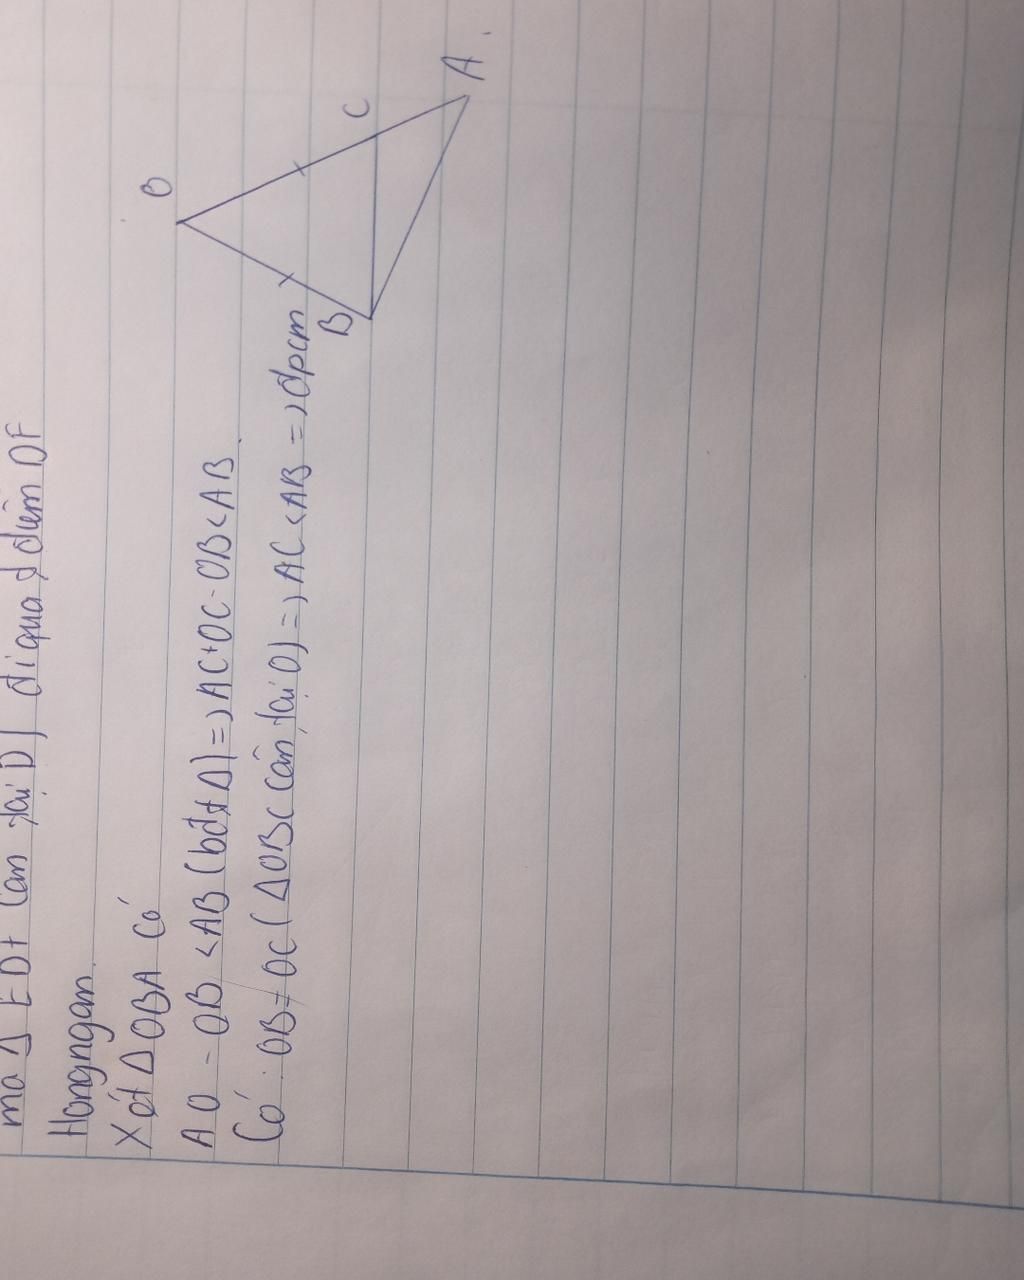 ma Δ EDF cân tại D) đi qua đ điểm DF
Hongngan.
Xét Δ OBA có
AO - OB < AB (bđt Δ) => AC+OC-OB<AB
Có: OB = OC (ΔOBC cân tại O) => AC<AB => đpcm
O
C
B
A